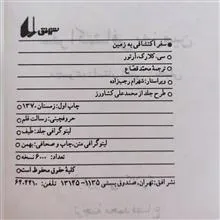 سفر اکتشافی به زمین
سی. کلارک، آرتور
ترجمهٔ محمد قصاع
ویراستار: شهرام رجب‌زاده
طرح جلد از محمدعلی کشاورز
چاپ اول: زمستان ۱۳۷۰
حروفچینی: رسالت قلم
لیتوگرافی جلد: طیف
لیتوگرافی متن، چاپ و صحافی: بهمن
تعداد: ۶۰۰۰ نسخه
کلیهٔ حقوق محفوظ است
نشر افق: تهران، صندوق پستی ۱۱۳۵-۱۳۱۴۵